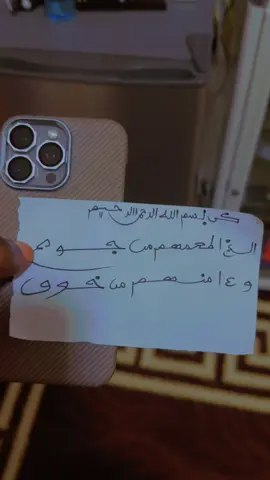 بسم الله الرحمن الرحيم
الذي اطعمهم من جوع
وءامنهم من خوف